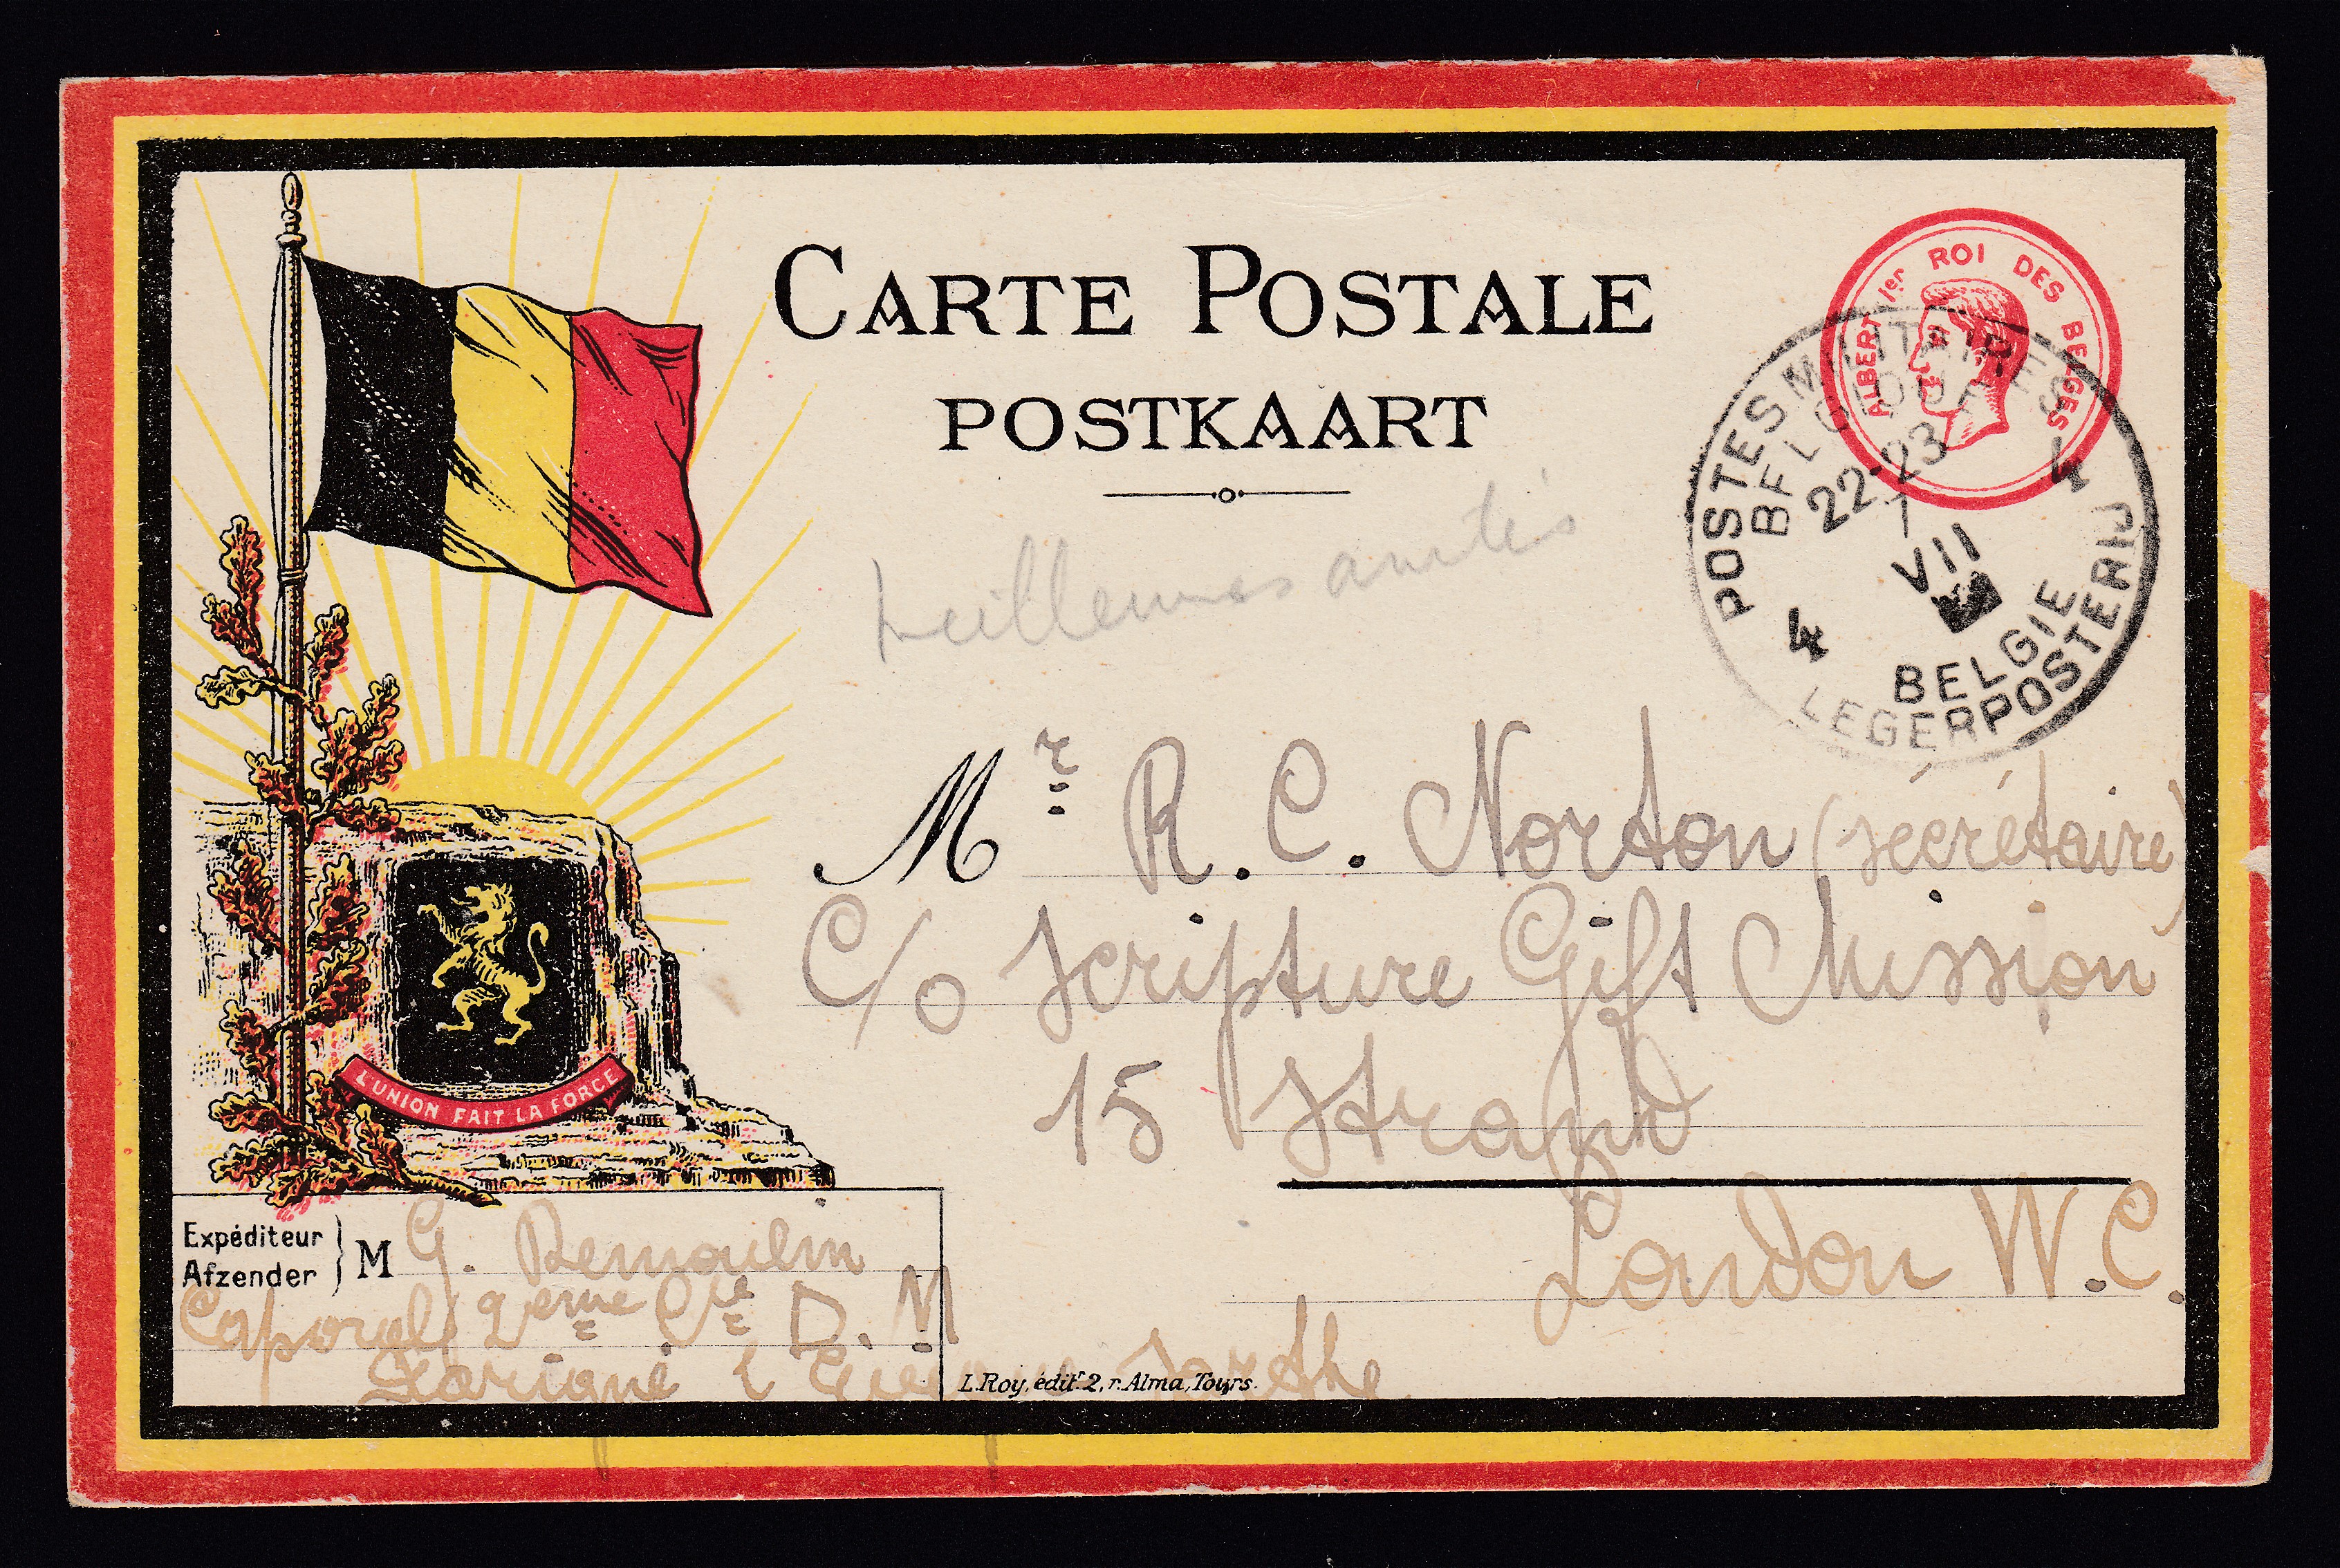 CARTE POSTALE
POSTKAART
ALBERT 1er ROI DES BELGES
POSTES MILITAIRES
BELGIQUE
22-23
VII
4 4
BELGIE
LEGERPOSTERIJ
Meilleures amitiés
Mr R. C. Norton (sécrétaire)
C/o Scripture Gift Mission
15 Strand
London W.C.
L'UNION FAIT LA FORCE
Expéditeur
Afzender } M G. Demoulin
Caporal 2eme Cie D. M
Parigné l' Sarthe
L. Roy, édit. 2, r. Alma, Tours.